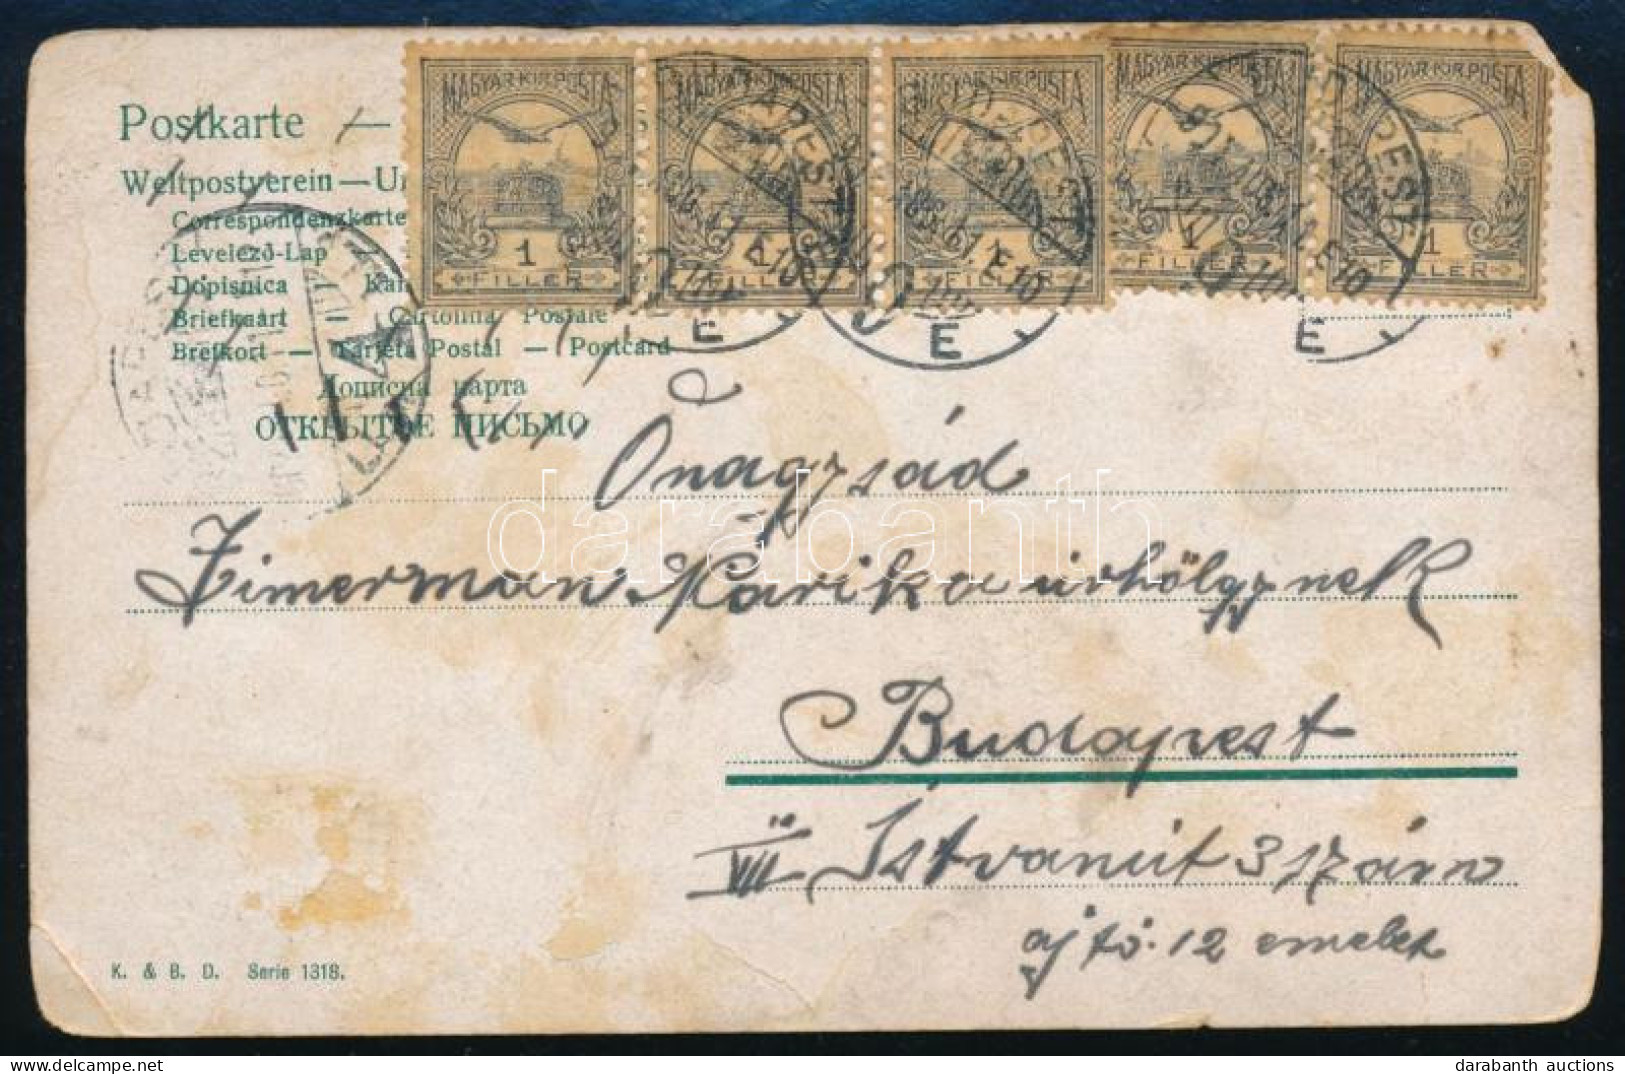 Postkarte —
Weltpostverein —
Correspondenzkarte
Levelező-Lap
Dopisnica
Briefkaart Cartolina Postale
Brefkort — Tarjeta Postal — Postcard
Дописна карта
ОТКРЫТОЕ ПИСЬМО
MAGYAR KIR POSTA
1
FILLÉR
MAGYAR KIR POSTA
1
FILLÉR
MAGYAR KIR POSTA
1
FILLÉR
MAGYAR KIR POSTA
1
FILLÉR
MAGYAR KIR POSTA
1
FILLÉR
Őnagysád
Zimerman Marika úrhölgynek
Budapest
VII István út 3 szám
ajtó. 12 emelet
K. & B. D. Serie 1318.
darabanth
darabanth auctions